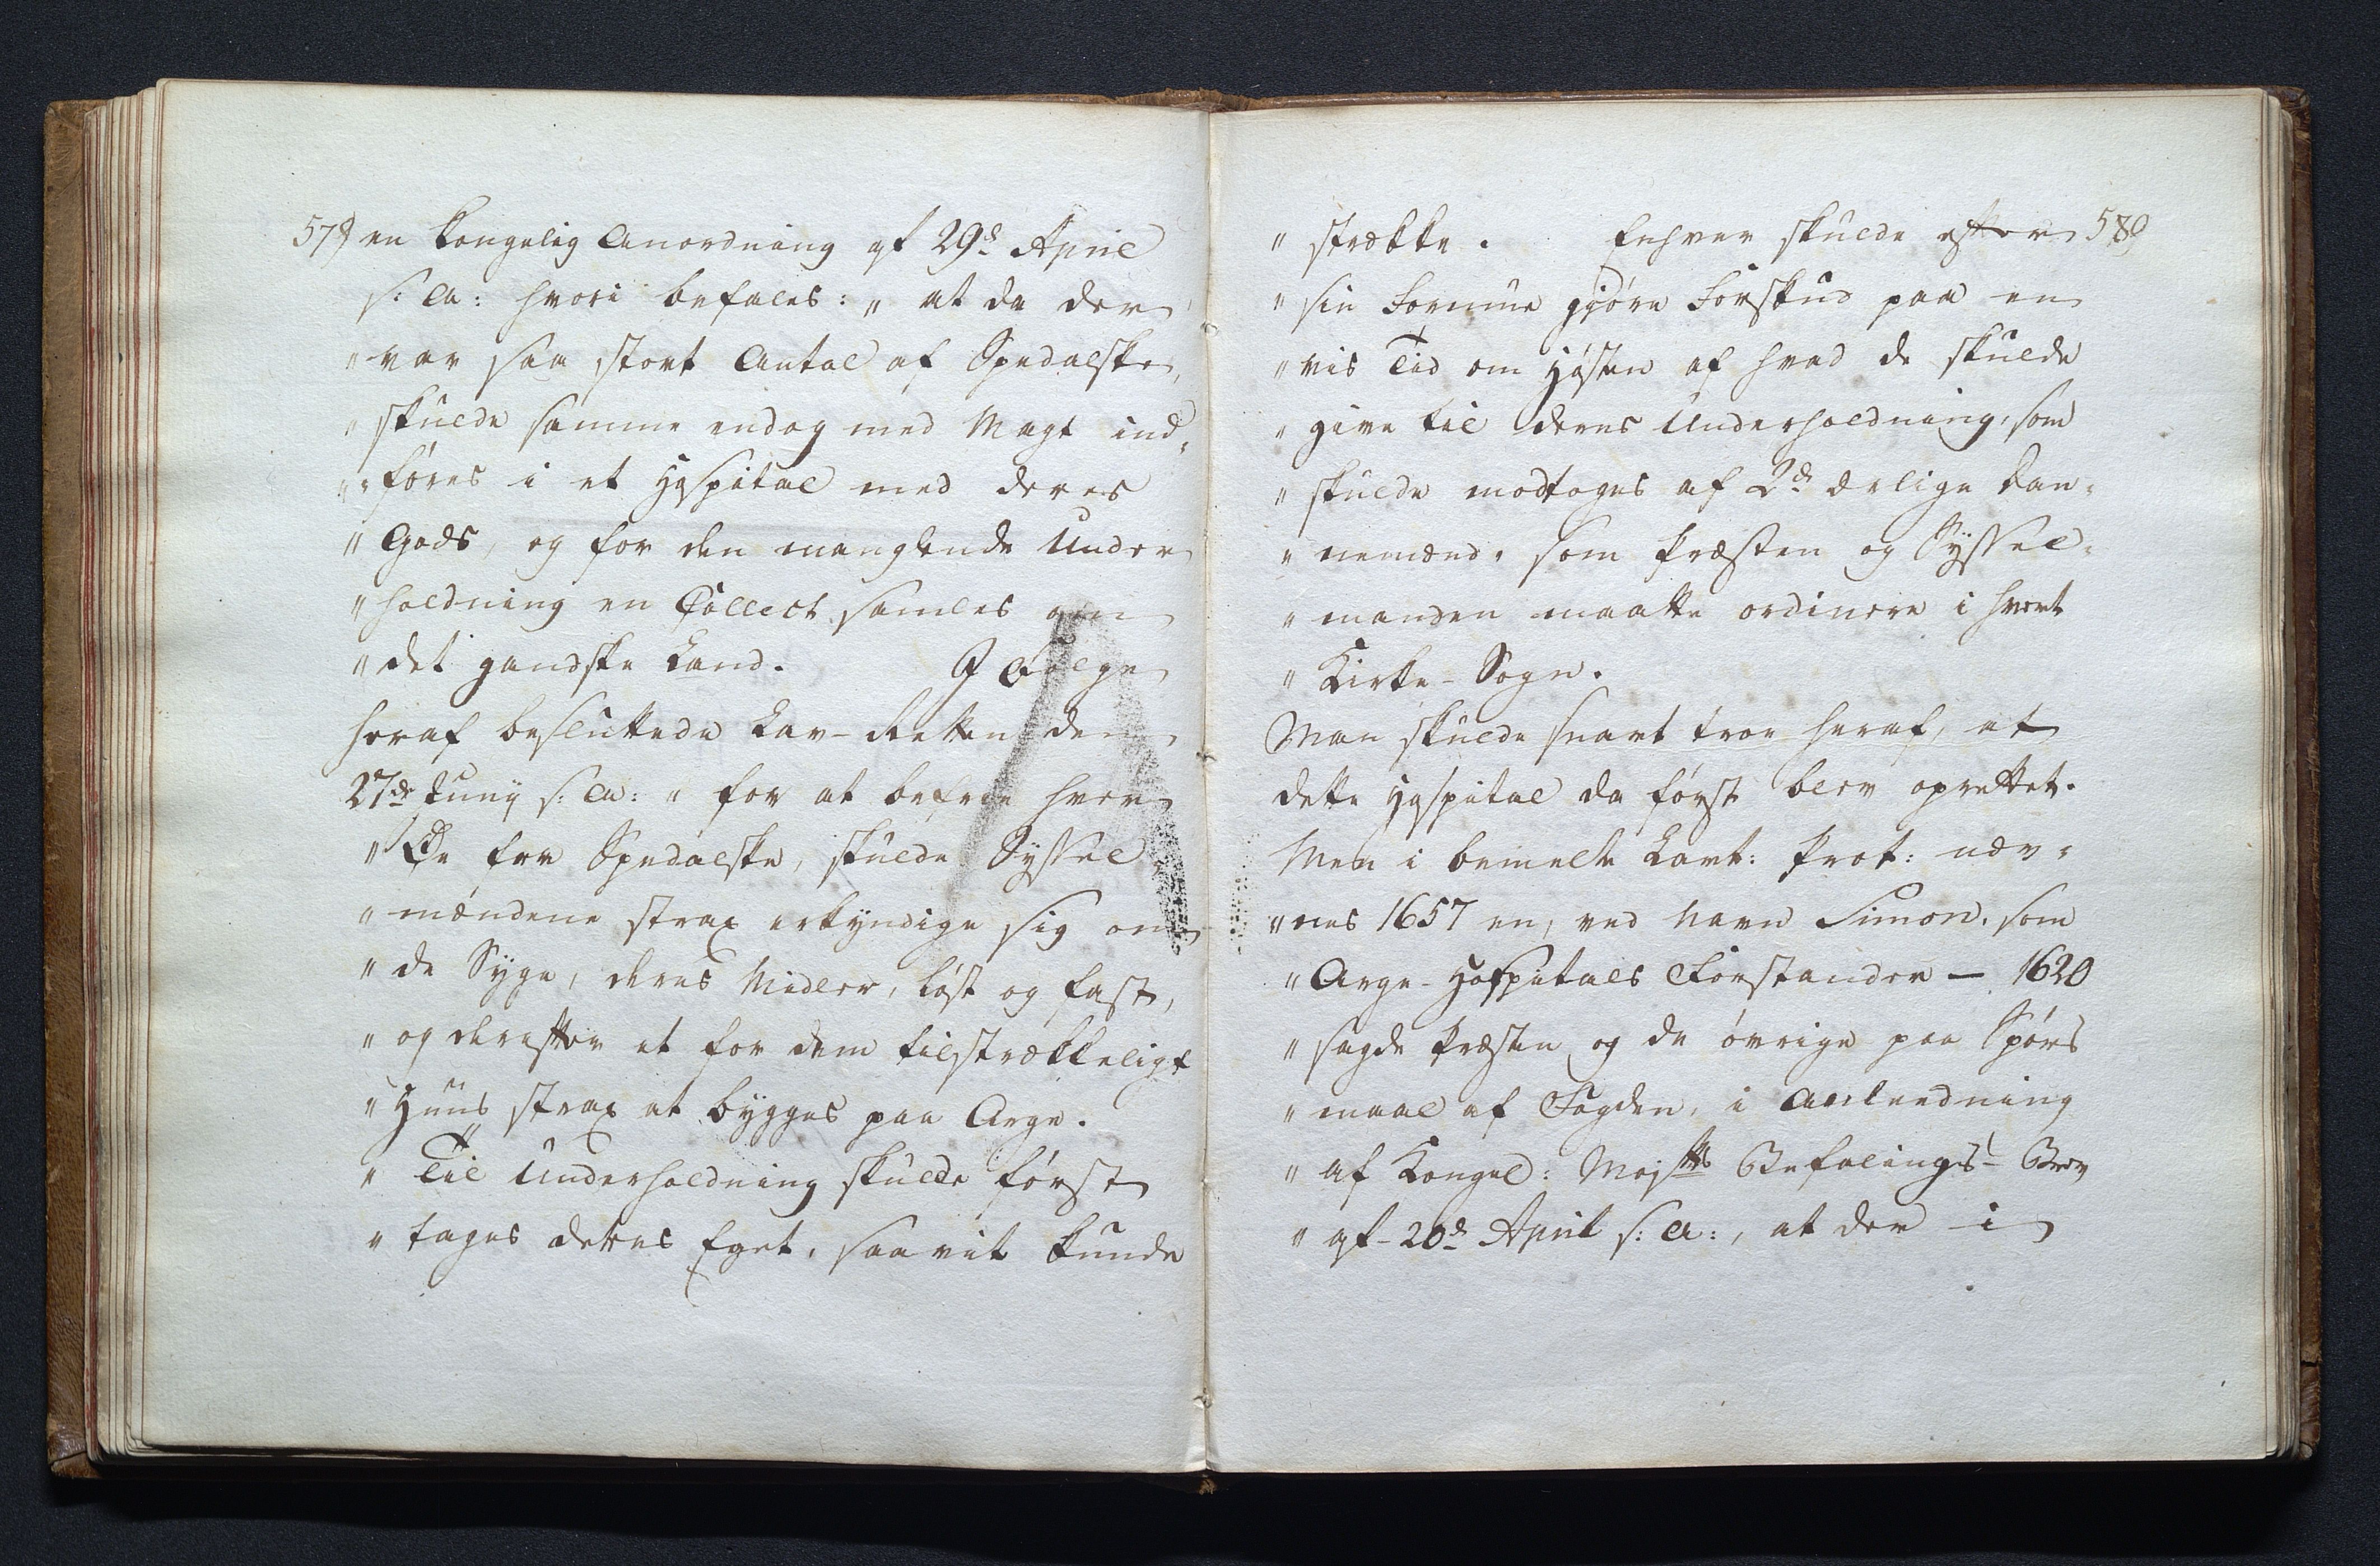 579
en kongelig Anordning af 29d April
s: A: hvori befales: „ at da der
„ var saa stort Antal af Spedalske,
„ skulde samme endog med Magt ind-
„ føres i et Hospital med deres
„ Gods, og for den manglende Under
„ holdning en Collect samles om
„ det gandske Land. I Følge
heraf besluttede Lav-Retten den
27de Junÿ s: A: „ for at befrie hver
„ Øe for Spedalske, skulde Syssel
„ mændene strax erkyndige sig om
„ de Syge, deres Midler, løst og fast,
„ og derefter et for dem tilstrækkeligt
„ Huus strax at bygges paa Arge.
„ Til Underholdning skulde først
„ tages deres Eget, saa vit kunde
580
„ strække. Enhver skulde efter
„ sin Formue gjøre Forskud paa en
„ vis Tid om Høsten af hvad de skulde
„ give til deres Underholdning, som
„ skulde modtages af 2de ærlige Dan-
„ nemænd, som Præsten og Syssel-
„ manden maatte ordinere i hvert
„ Kirke-Sogn.
Man skulde snart troe heraf, at
dette Hospital da først blev oprettet.
Men i bemelte Lavt: Prot: næv-
„ nes 1657 en, ved Navn Simon, som
„ Arge-Hospitals Forstander — 1620
„ sagde Præsten og de øvrige paa Spørs
„ maal af Fogden, i Anledning
„ af Kongel: Majstts Befalings-Brev
„ af 20d April s: A:, at der i